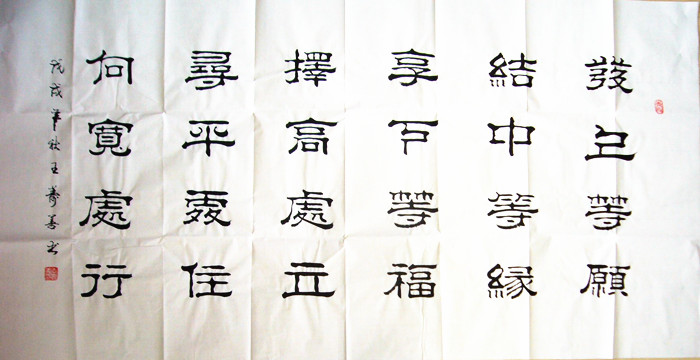 發上等願
結中等緣
享下等福
擇高處立
尋平處住
向寬處行
戊戌年秋王寿善书